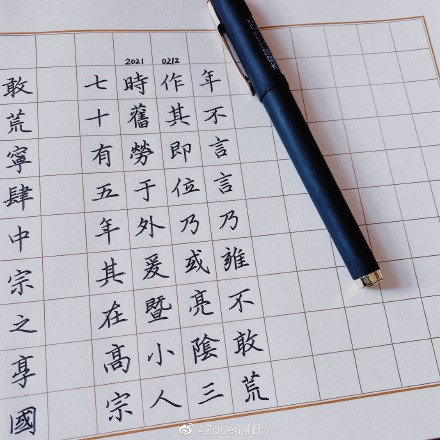 2021 0212
敢荒寧肆中宗之享國
七十有五年其在高宗
時舊勞于外爰暨小人
作其即位乃或亮陰三
年不言言乃雍不敢荒